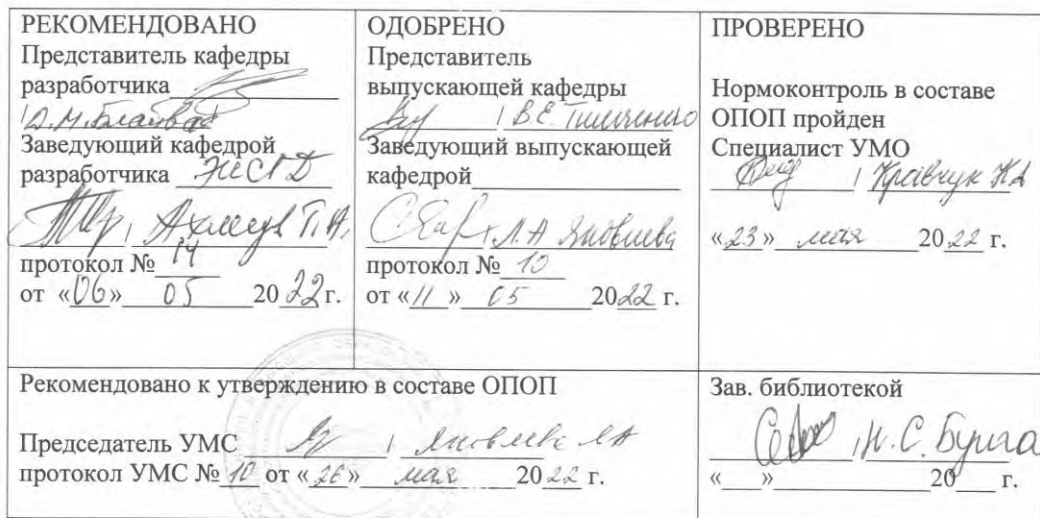 РЕКОМЕНДОВАНО
Представитель кафедры
разработчика
Заведующий кафедрой
разработчика ЭиСГД
Т.А.
протокол № 14
от «06» 05 2022 г.
ОДОБРЕНО
Представитель
выпускающей кафедры
В.Е.
Заведующий выпускающей
кафедрой
Л.А Яковлева
протокол № 10
от «11» 05 2022 г.
ПРОВЕРЕНО
Нормоконтроль в составе
ОПОП пройден
Специалист УМО
/ Кравчук
«23» мая 2022 г.
Рекомендовано к утверждению в составе ОПОП
Председатель УМС / Яковлева ЛА
протокол УМС № 10 от «26» мая 2022 г.
Зав. библиотекой
/ Н.С. Бунга
«___»____________20___ г.